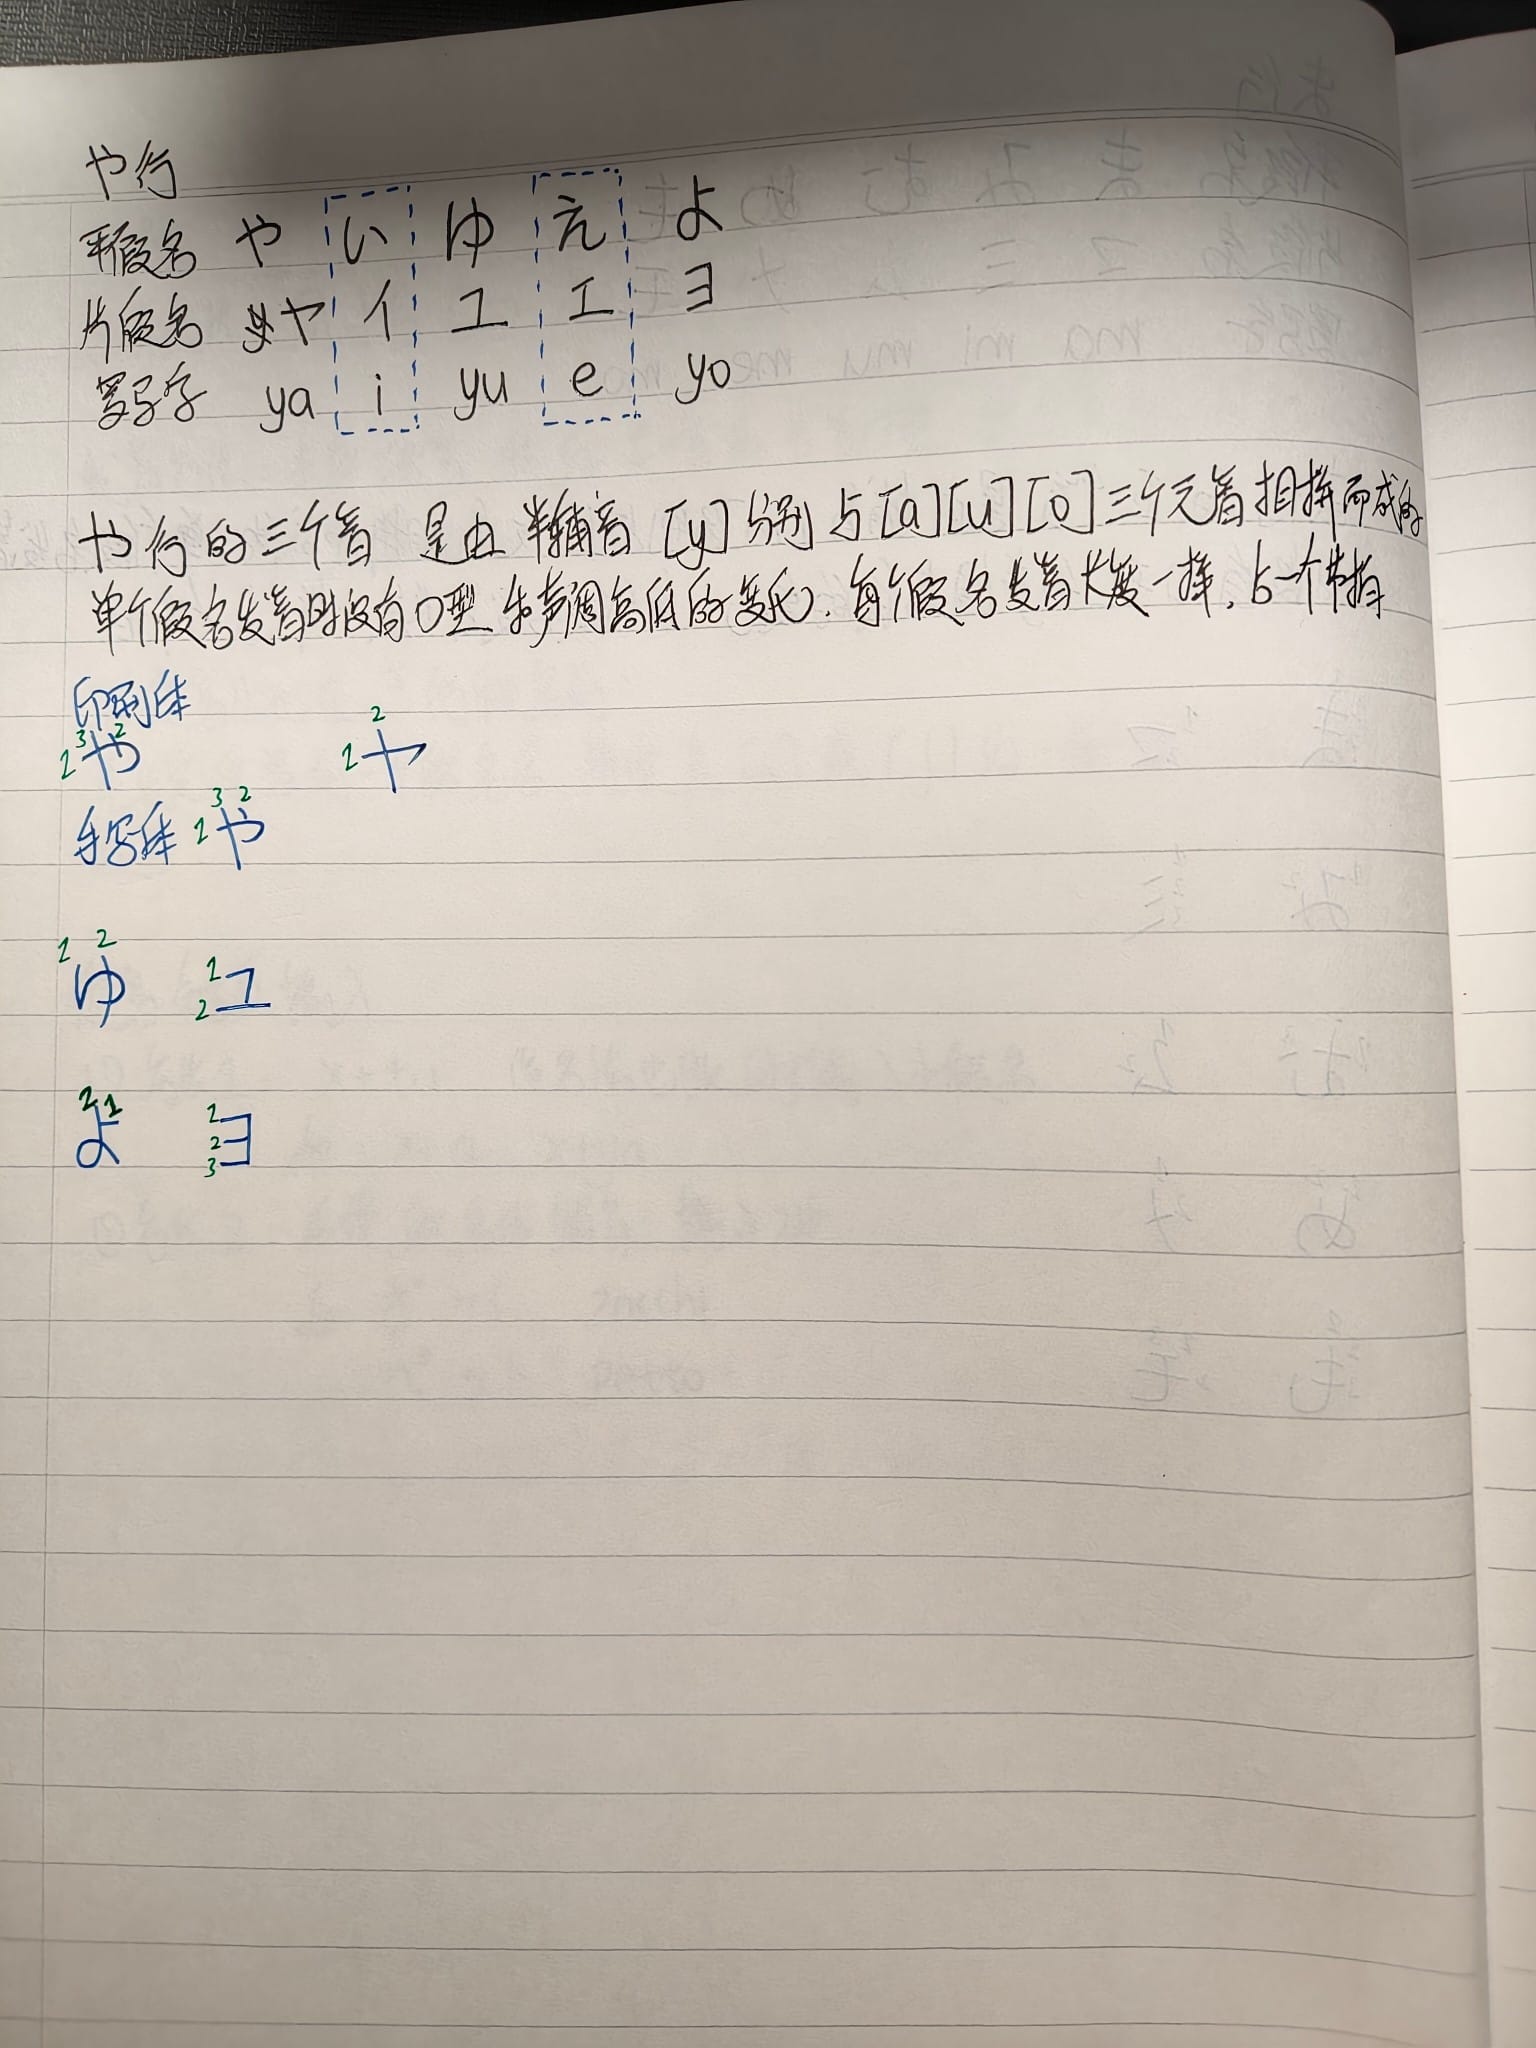 や行
平假名 や い ゆ え よ
片假名 ヤ イ ユ エ ヨ
罗马字 ya i yu e yo
や行的三个音 是由 半辅音 [y] 分别 与 [a][u][o] 三个元音 相拼而成的
单个假名发音时没有口型 和声调高低的变化. 每个假名发音长度一样, 占一个节拍
印刷体
1 3 や 2 1 ヤ 2
手写体 1 3 や 2
1 ゆ 2 1 2 ユ
2 よ 1 1 2 3 ヨ